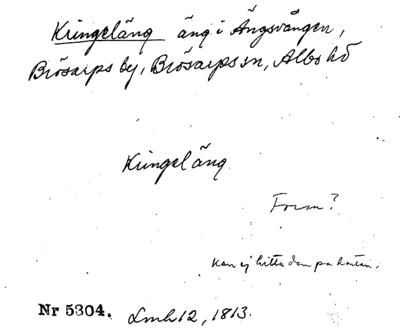 Kringeläng äng i Ängsvången,
Brösarps by, Brösarps sn, Albo hd
Kringeläng
Form?
Kan ej hitta den på kartan.
Nr 5304. Lmh 12, 1813.